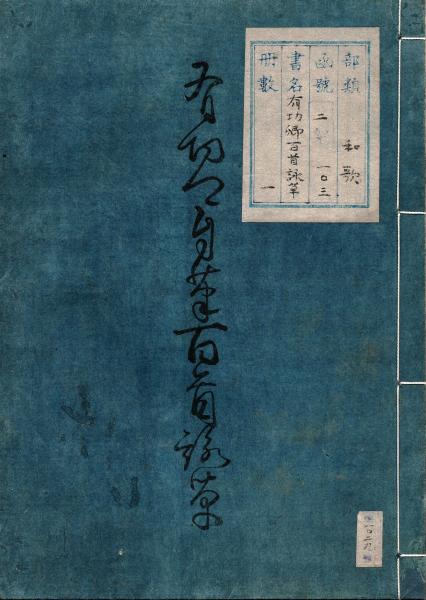 部類 和歌
函號 二 一〇三
書名 有功卿百首詠草
冊數 一
有功卿自筆百首詠草
一〇二九